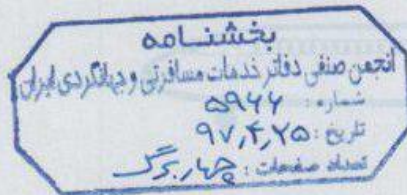 بخشنامه
انجمن صنفی دفاتر خدمات مسافرتی و جهانگردی ایران
شماره: ۵۹۶۶
تاریخ: ۹۷,۴,۲۵
تعداد صفحات: چهار برگ